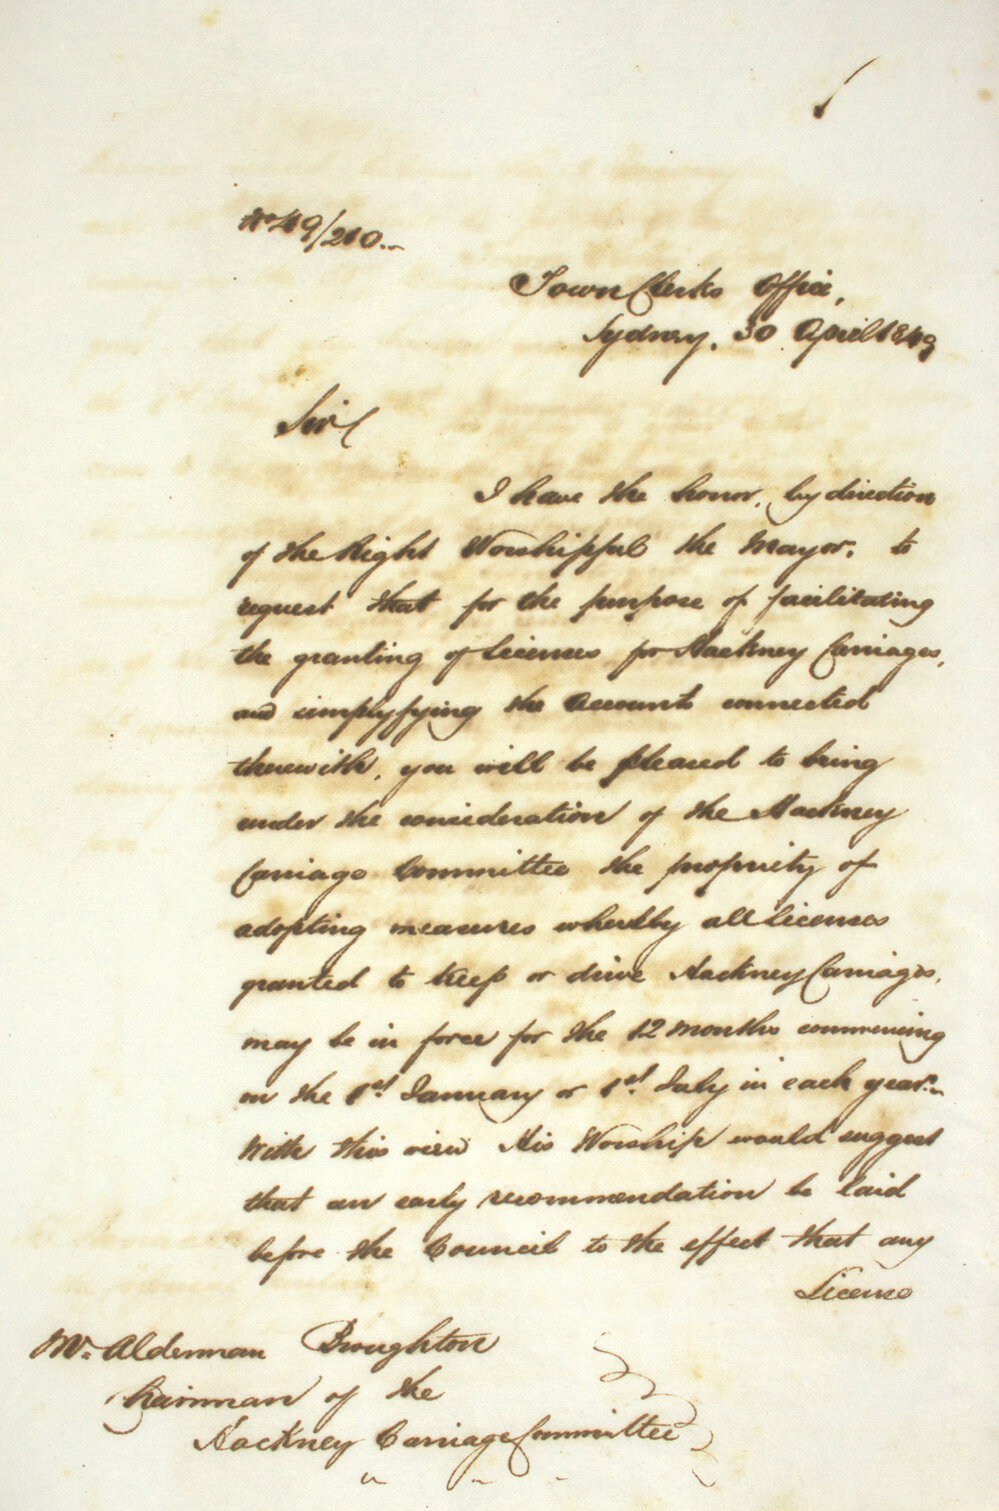 No 49/210
Town Clerks Office,
Sydney, 30 April 1849
Sir
I have the honor, by direction
of the Right Worshipful the Mayor, to
request that for the purpose of facilitating
the granting of Licenses for Hackney Carriages,
and simplyfying the Accounts connected
therewith, you will be pleased to bring
under the consideration of the Hackney
Carriage Committee the propriety of
adopting measures whereby all licenses
granted to keep or drive Hackney Carriages,
may be in force for the 12 months commencing
on the 1st January or 1st July in each year.
With this view His Worship would suggest
that an early recommendation be laid
before the Council to the effect that any
License
Mr Alderman Broughton
Chairman of the
Hackney Carriage Committee